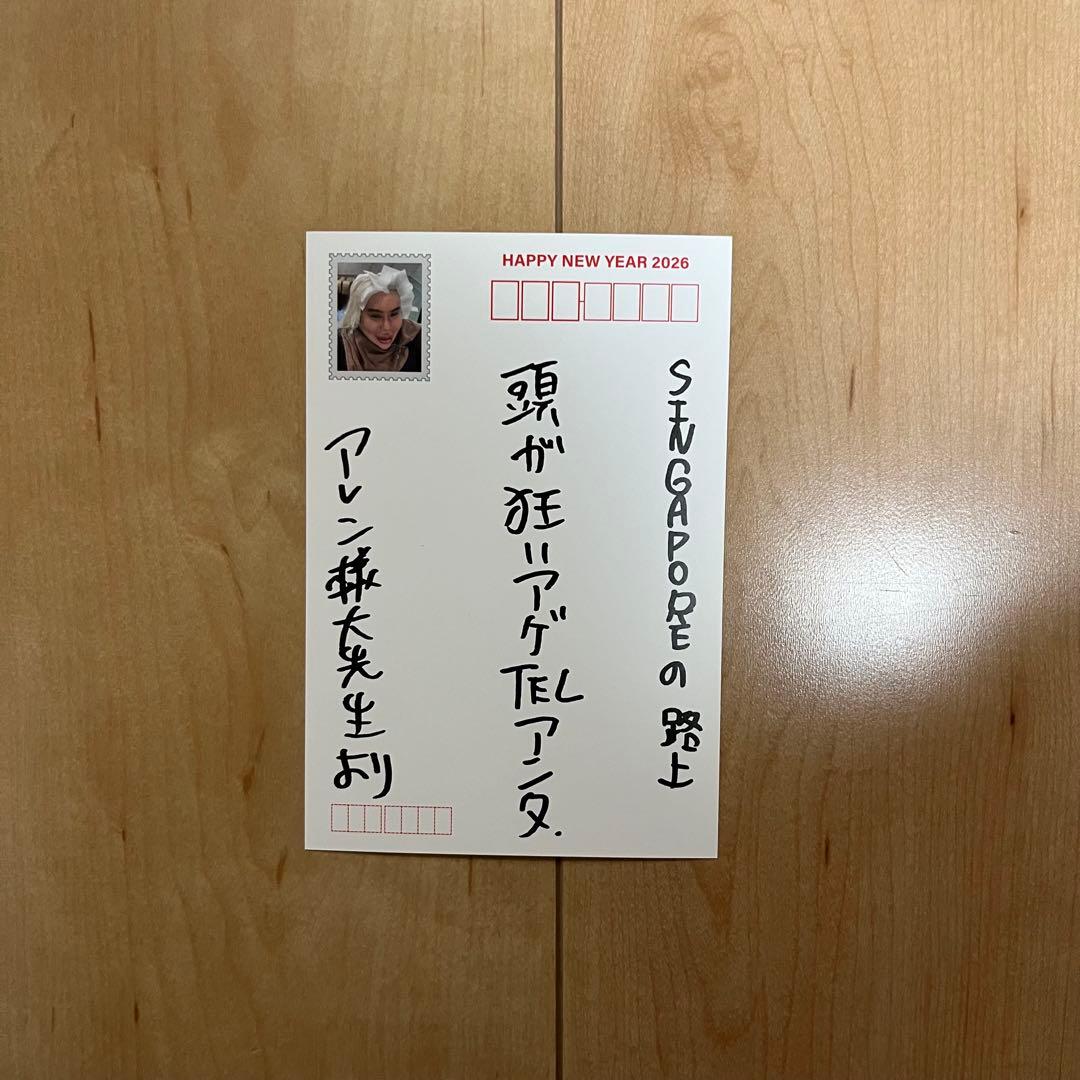 HAPPY NEW YEAR 2026
SINGAPOREの路上
頭が狂いアゲTELアンタ.
アレン様大先生より